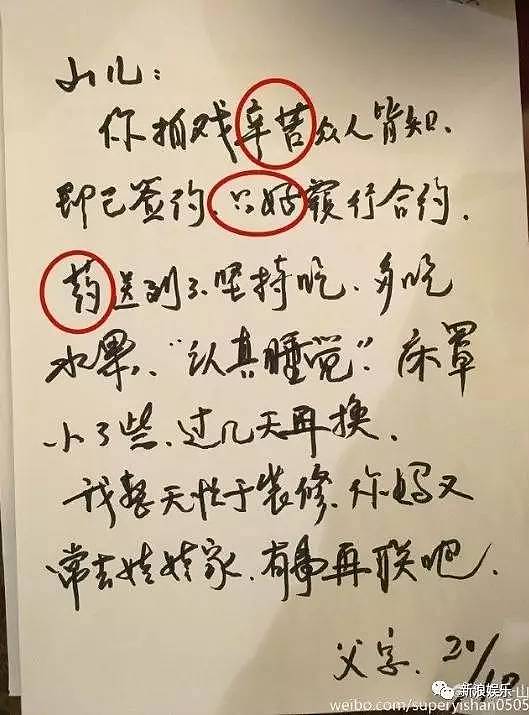 山儿:
你拍戏辛苦众人皆知.
即已签约.只好履行合约.
药送到了.坚持吃.多吃
水果."认真睡觉".床罩
小了些.过几天再换.
我整天忙于装修.你妈又
常去娃娃家.有事再联吧.
父字. 20/10
新浪娱乐-山
weibo.com/superyishan0505